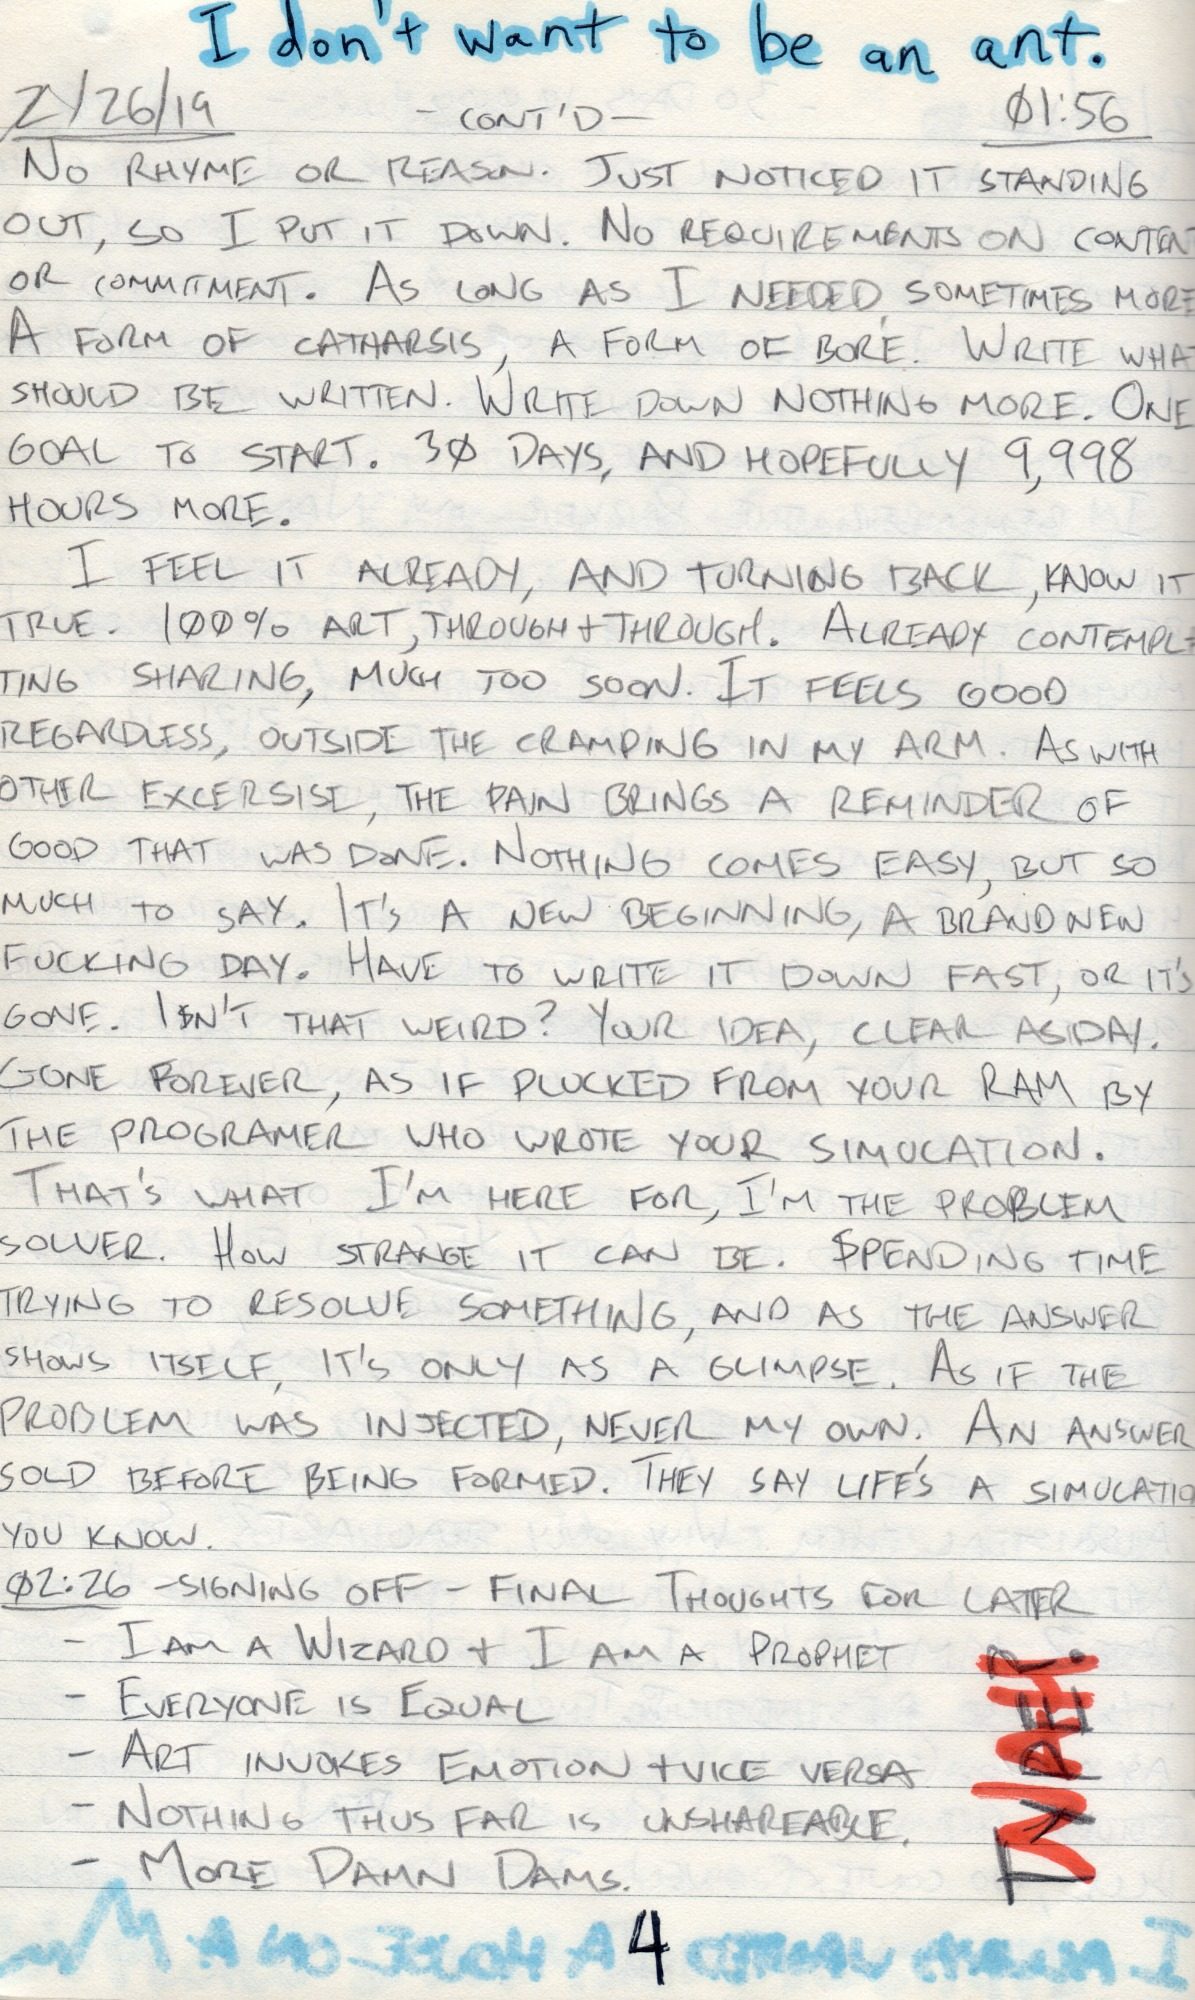 I don't want to be an ant.
2/26/19 - CONT'D - 01:56
NO RHYME OR REASON. JUST NOTICED IT STANDING
OUT, SO I PUT IT DOWN. NO REQUIREMENTS ON CONTEN
OR COMMITMENT. AS LONG AS I NEEDED, SOMETIMES MORE
A FORM OF CATHARSIS, A FORM OF BORE. WRITE WHA
SHOULD BE WRITTEN. WRITE DOWN NOTHING MORE. ONE
GOAL TO START. 30 DAYS, AND HOPEFULLY 9,998
HOURS MORE.
I FEEL IT ALREADY, AND TURNING BACK, KNOW IT
TRUE. 100% ART, THROUGH + THROUGH. ALREADY CONTEMPL
TING SHARING, MUCH TOO SOON. IT FEELS GOOD
REGARDLESS, OUTSIDE THE CRAMPING IN MY ARM. AS WITH
OTHER EXCERSISE, THE PAIN BRINGS A REMINDER OF
GOOD THAT WAS DONE. NOTHING COMES EASY, BUT SO
MUCH TO SAY. IT'S A NEW BEGINNING, A BRAND NEW
FUCKING DAY. HAVE TO WRITE IT DOWN FAST, OR IT'S
GONE. ISN'T THAT WEIRD? YOUR IDEA, CLEAR AS DAY.
GONE FOREVER, AS IF PLUCKED FROM YOUR RAM BY
THE PROGRAMER WHO WROTE YOUR SIMULATION.
THAT'S WHAT I'M HERE FOR, I'M THE PROBLEM
SOLVER. HOW STRANGE IT CAN BE. SPENDING TIME
TRYING TO RESOLVE SOMETHING, AND AS THE ANSWER
SHOWS ITSELF, IT'S ONLY AS A GLIMPSE. AS IF THE
PROBLEM WAS INJECTED, NEVER MY OWN. AN ANSWER
SOLD BEFORE BEING FORMED. THEY SAY LIFE'S A SIMULATIO
YOU KNOW.
02:26 - SIGNING OFF - FINAL THOUGHTS FOR LATER
- I AM A WIZARD + I AM A PROPHET
- EVERYONE IS EQUAL
- ART INVOKES EMOTION + VICE VERSA
- NOTHING THUS FAR IS UNSHAREABLE.
- MORE DAMN DAMS.
4